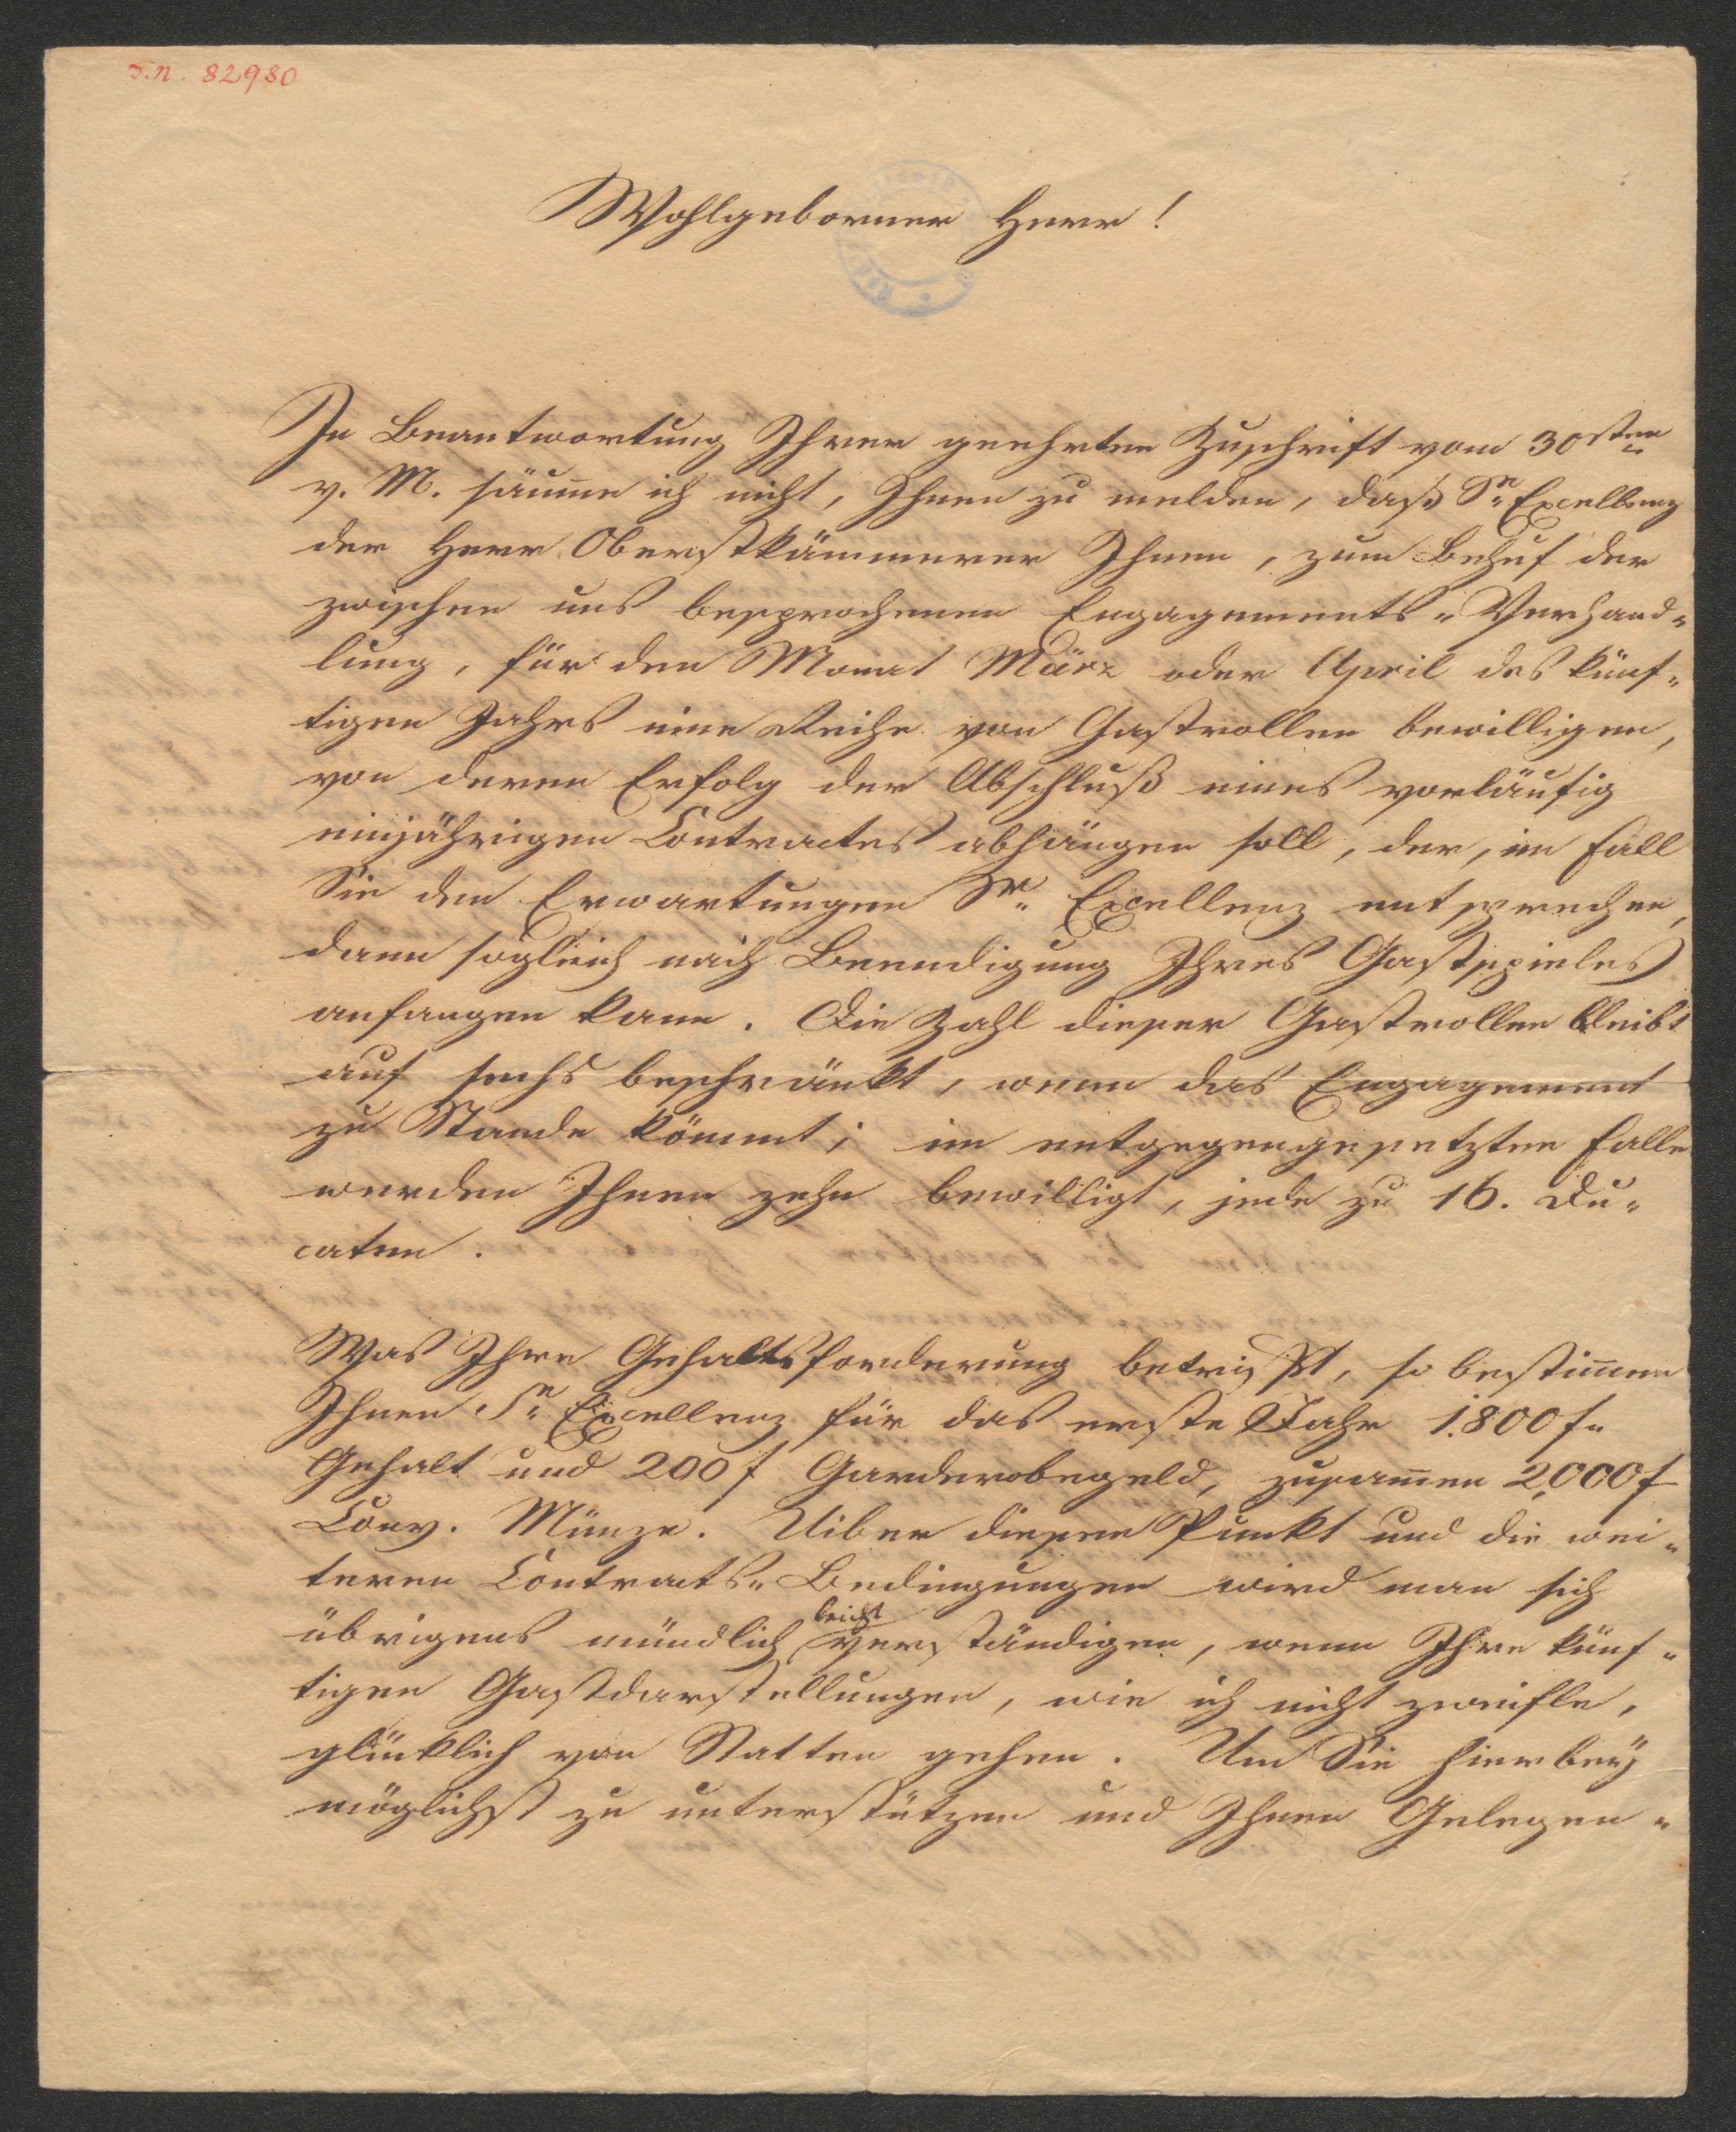 J. N. 82980
Wohlgeborner Herr!
In Beantwortung Ihrer geehrten Zuschrift vom 30sten
v. M. säume ich nicht, Ihnen zu melden, daß Se Excellenz
der Herr Oberstkämmerer Ihnen, zum Behuf der
zwischen uns besprochenen Engagements-Verhand-
lung, für den Monat März oder April des künf-
tigen Jahrs eine Reihe von Gastrollen bewilligen,
von deren Erfolg der Abschluß eines vorläufig
einjährigen Contractes abhängen soll, der, im Fall
Sie den Erwartungen Sr. Excellenz entsprechen,
dann sogleich nach Beendigung Ihres Gastspieles
anfangen kann. Die Zahl dieser Gastrollen bleibt
auf sechs beschränkt, wenn das Engagement
zu Stande kömmt; im entgegengesetzten Falle
werden Ihnen zehn bewilligt, jede zu 16. Du-
caten.
Was Ihre Gehaltsforderung betrifft, so bestimmen
Ihnen Se Excellenz für das erste Jahr 1.800 f.
Gehalt und 200 f Garderobegeld, zusammen 2,000 f
Conv. Münze. Uiber diesen Punkt und die wei-
teren Contracts-Bedingungen wird man sich
übrigens mündlich leicht verständigen, wenn Ihre künf-
tigen Gastdarstellungen, wie ich nicht zweifle,
glücklich von Statten gehen. Um Sie hierbey
möglichst zu unterstützen und Ihnen Gelegen-